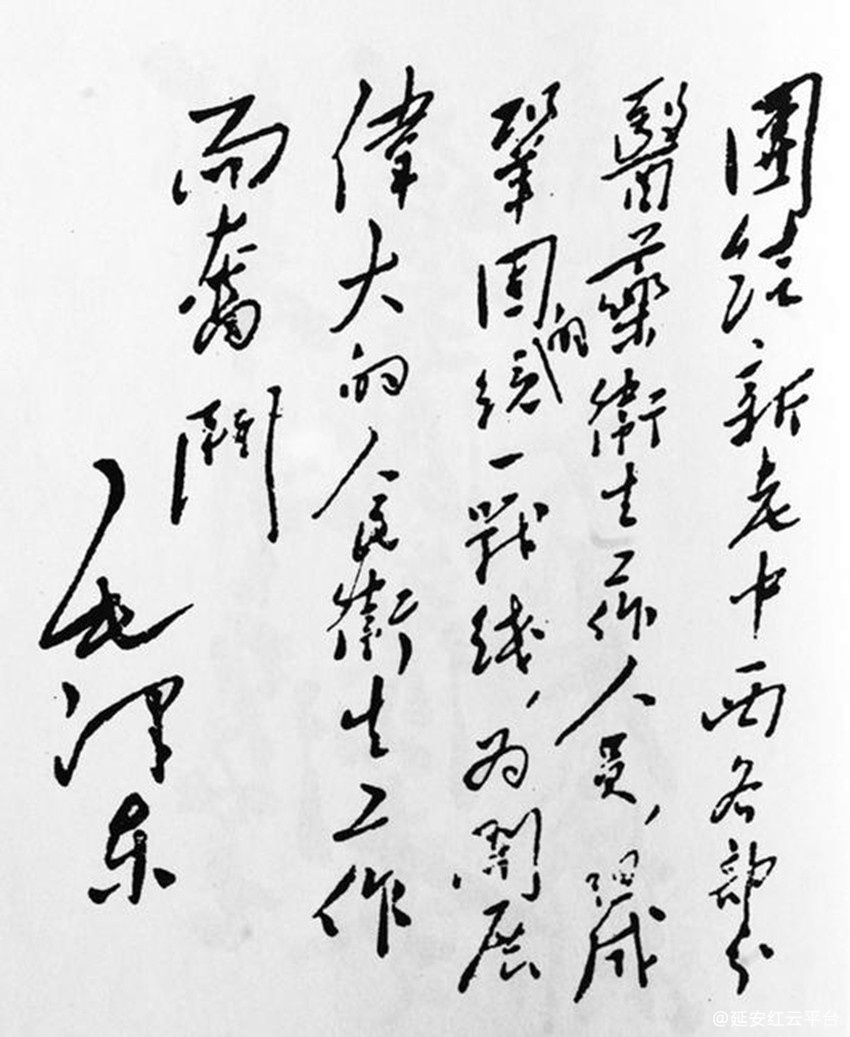 團结新老中西各部分
醫藥衛生工作人員，组成
鞏固的統一戰线，为開展
偉大的人民衛生工作
而奮鬥
毛泽东
@延安红云平台